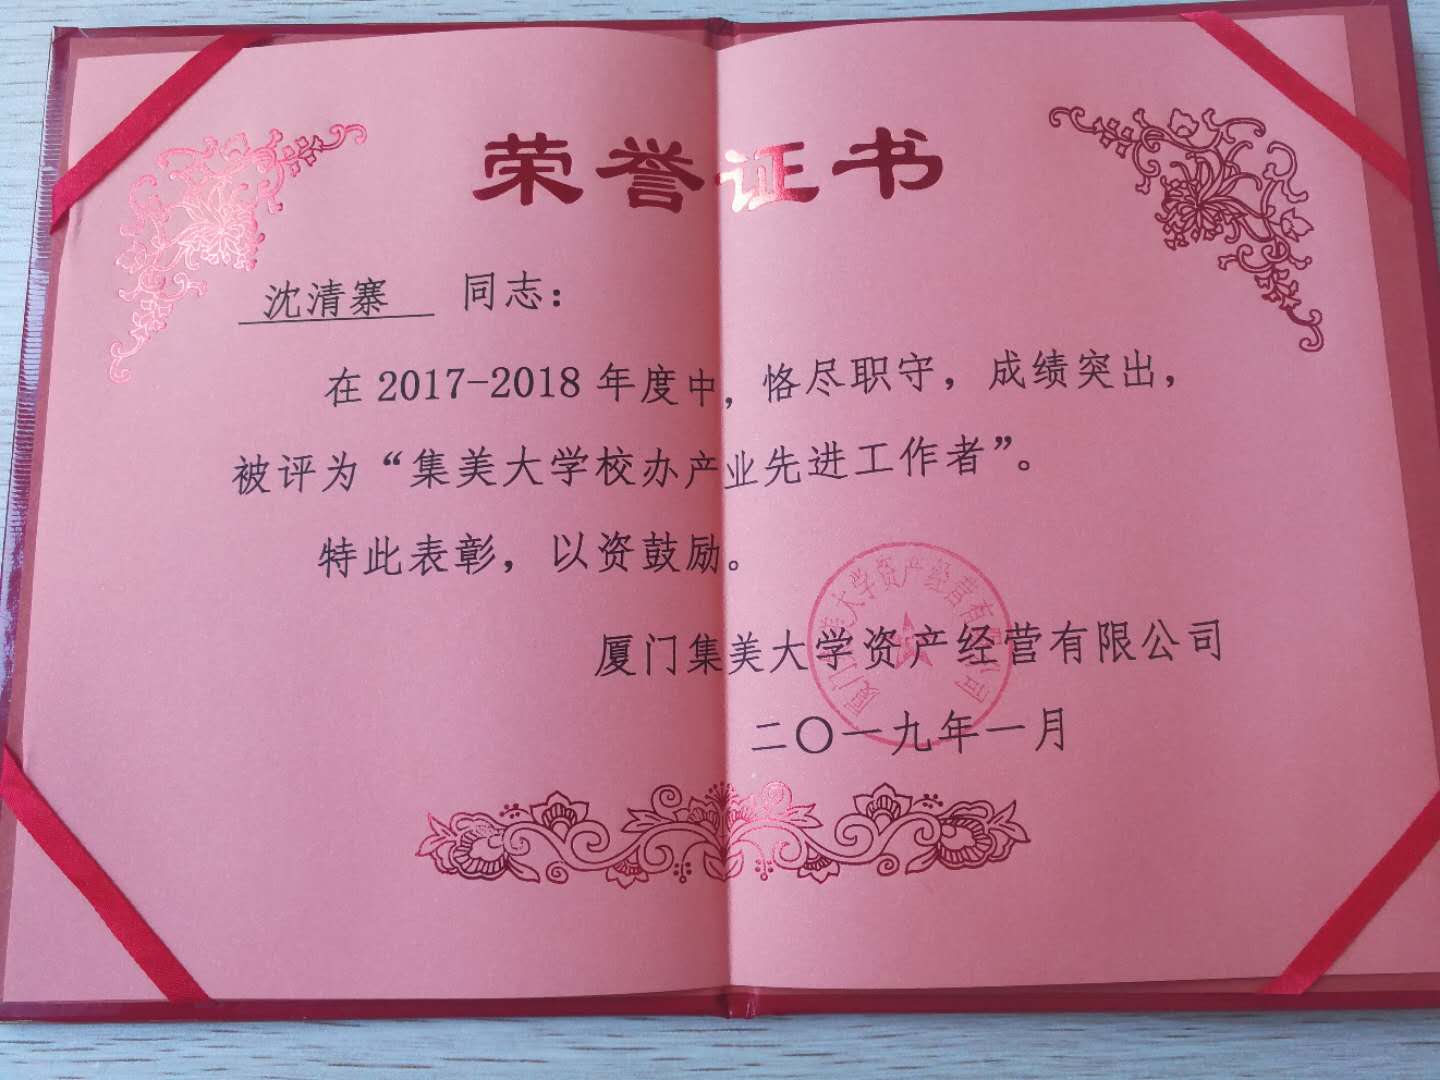 荣誉证书
沈清寨 同志：
在2017-2018年度中，恪尽职守，成绩突出，
被评为“集美大学校办产业先进工作者”。
特此表彰，以资鼓励。
厦门集美大学资产经营有限公司
二〇一九年一月
厦门集美大学资产经营有限公司